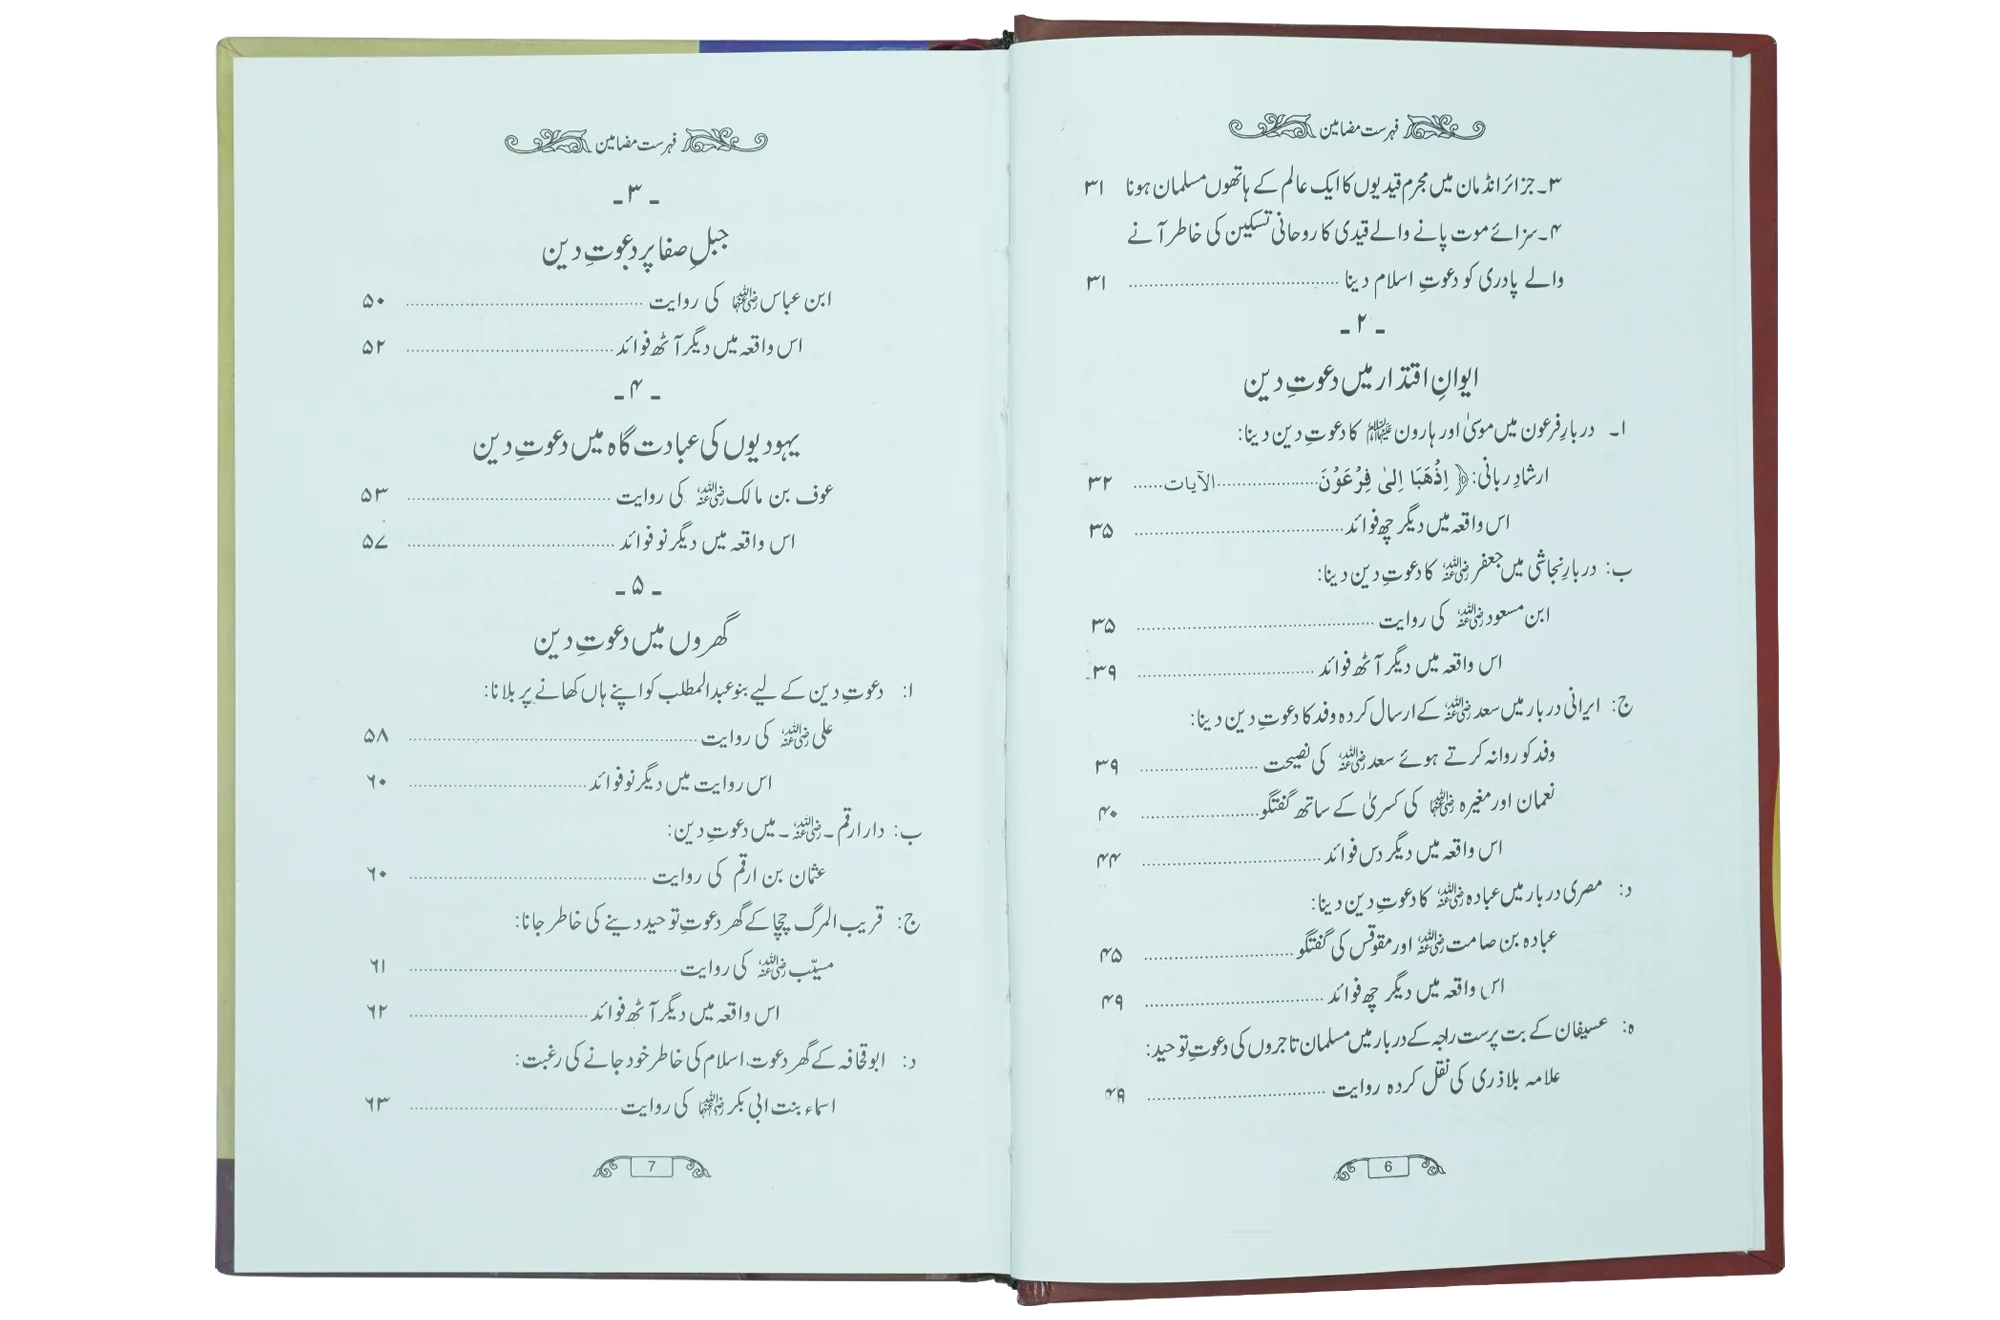 فہرست مضامین
۳۔جزائر انڈمان میں مجرم قیدیوں کا ایک عالم کے ہاتھوں مسلمان ہونا ۳۱
۴۔سزائے موت پانے والے قیدی کا روحانی تسکین کی خاطر آنے
والے پادری کو دعوتِ اسلام دینا ........................................ ۳۱
۔ ۲ ۔
ایوانِ اقتدار میں دعوتِ دین
ا۔ دربارِ فرعون میں موسیٰ اور ہارون علیہما السلام کا دعوتِ دین دینا:
ارشادِ ربانی: ﴿ اِذْهَبَا اِلىٰ فِرْعَوْنَ....................الآیات...... ۳۲
اس واقعہ میں دیگر چھ فوائد ........................................ ۳۵
ب: دربارِ نجاشی میں جعفر رضی اللہ عنہ کا دعوتِ دین دینا:
ابن مسعود رضی اللہ عنہ کی روایت ........................................ ۳۵
اس واقعہ میں دیگر آٹھ فوائد ........................................ ۳۹
ج: ایرانی دربار میں سعد رضی اللہ عنہ کے ارسال کردہ وفد کا دعوتِ دین دینا:
وفد کو روانہ کرتے ہوئے سعد رضی اللہ عنہ کی نصیحت .................... ۳۹
نعمان اور مغیرہ رضی اللہ عنہما کی کسریٰ کے ساتھ گفتگو .................... ۴۰
اس واقعہ میں دیگر دس فوائد .............................. ۴۴
د: مصری دربار میں عبادہ رضی اللہ عنہ کا دعوتِ دین دینا:
عبادہ بن صامت رضی اللہ عنہ اور مقوقس کی گفتگو .............................. ۴۵
اس واقعہ میں دیگر چھ فوائد .............................. ۴۹
ہ: عسیفان کے بت پرست راجہ کے دربار میں مسلمان تاجروں کی دعوتِ توحید:
علامہ بلاذری کی نقل کردہ روایت .............................. ۴۹
6
فہرست مضامین
۔ ۳ ۔
جبلِ صفا پر دعوتِ دین
ابن عباس رضی اللہ عنہما کی روایت ........................................ ۵۰
اس واقعہ میں دیگر آٹھ فوائد ........................................ ۵۲
۔ ۴ ۔
یہودیوں کی عبادت گاہ میں دعوتِ دین
عوف بن مالک رضی اللہ عنہ کی روایت ........................................ ۵۳
اس واقعہ میں دیگر نو فوائد ........................................ ۵۷
۔ ۵ ۔
گھروں میں دعوتِ دین
ا: دعوتِ دین کے لیے بنو عبدالمطلب کو اپنے ہاں کھانے پر بلانا:
علی رضی اللہ عنہ کی روایت ........................................ ۵۸
اس روایت میں دیگر نو فوائد .............................. ۶۰
ب: دار ارقم ۔ رضی اللہ عنہ ۔ میں دعوتِ دین:
عثمان بن ارقم کی روایت ........................................ ۶۰
ج: قریب المرگ چچا کے گھر دعوتِ توحید دینے کی خاطر جانا:
مسیّب رضی اللہ عنہ کی روایت ........................................ ۶۱
اس واقعہ میں دیگر آٹھ فوائد .............................. ۶۲
د: ابو قحافہ کے گھر دعوت اسلام کی خاطر خود جانے کی رغبت:
اسماء بنت ابی بکر رضی اللہ عنہما کی روایت .............................. ۶۳
7